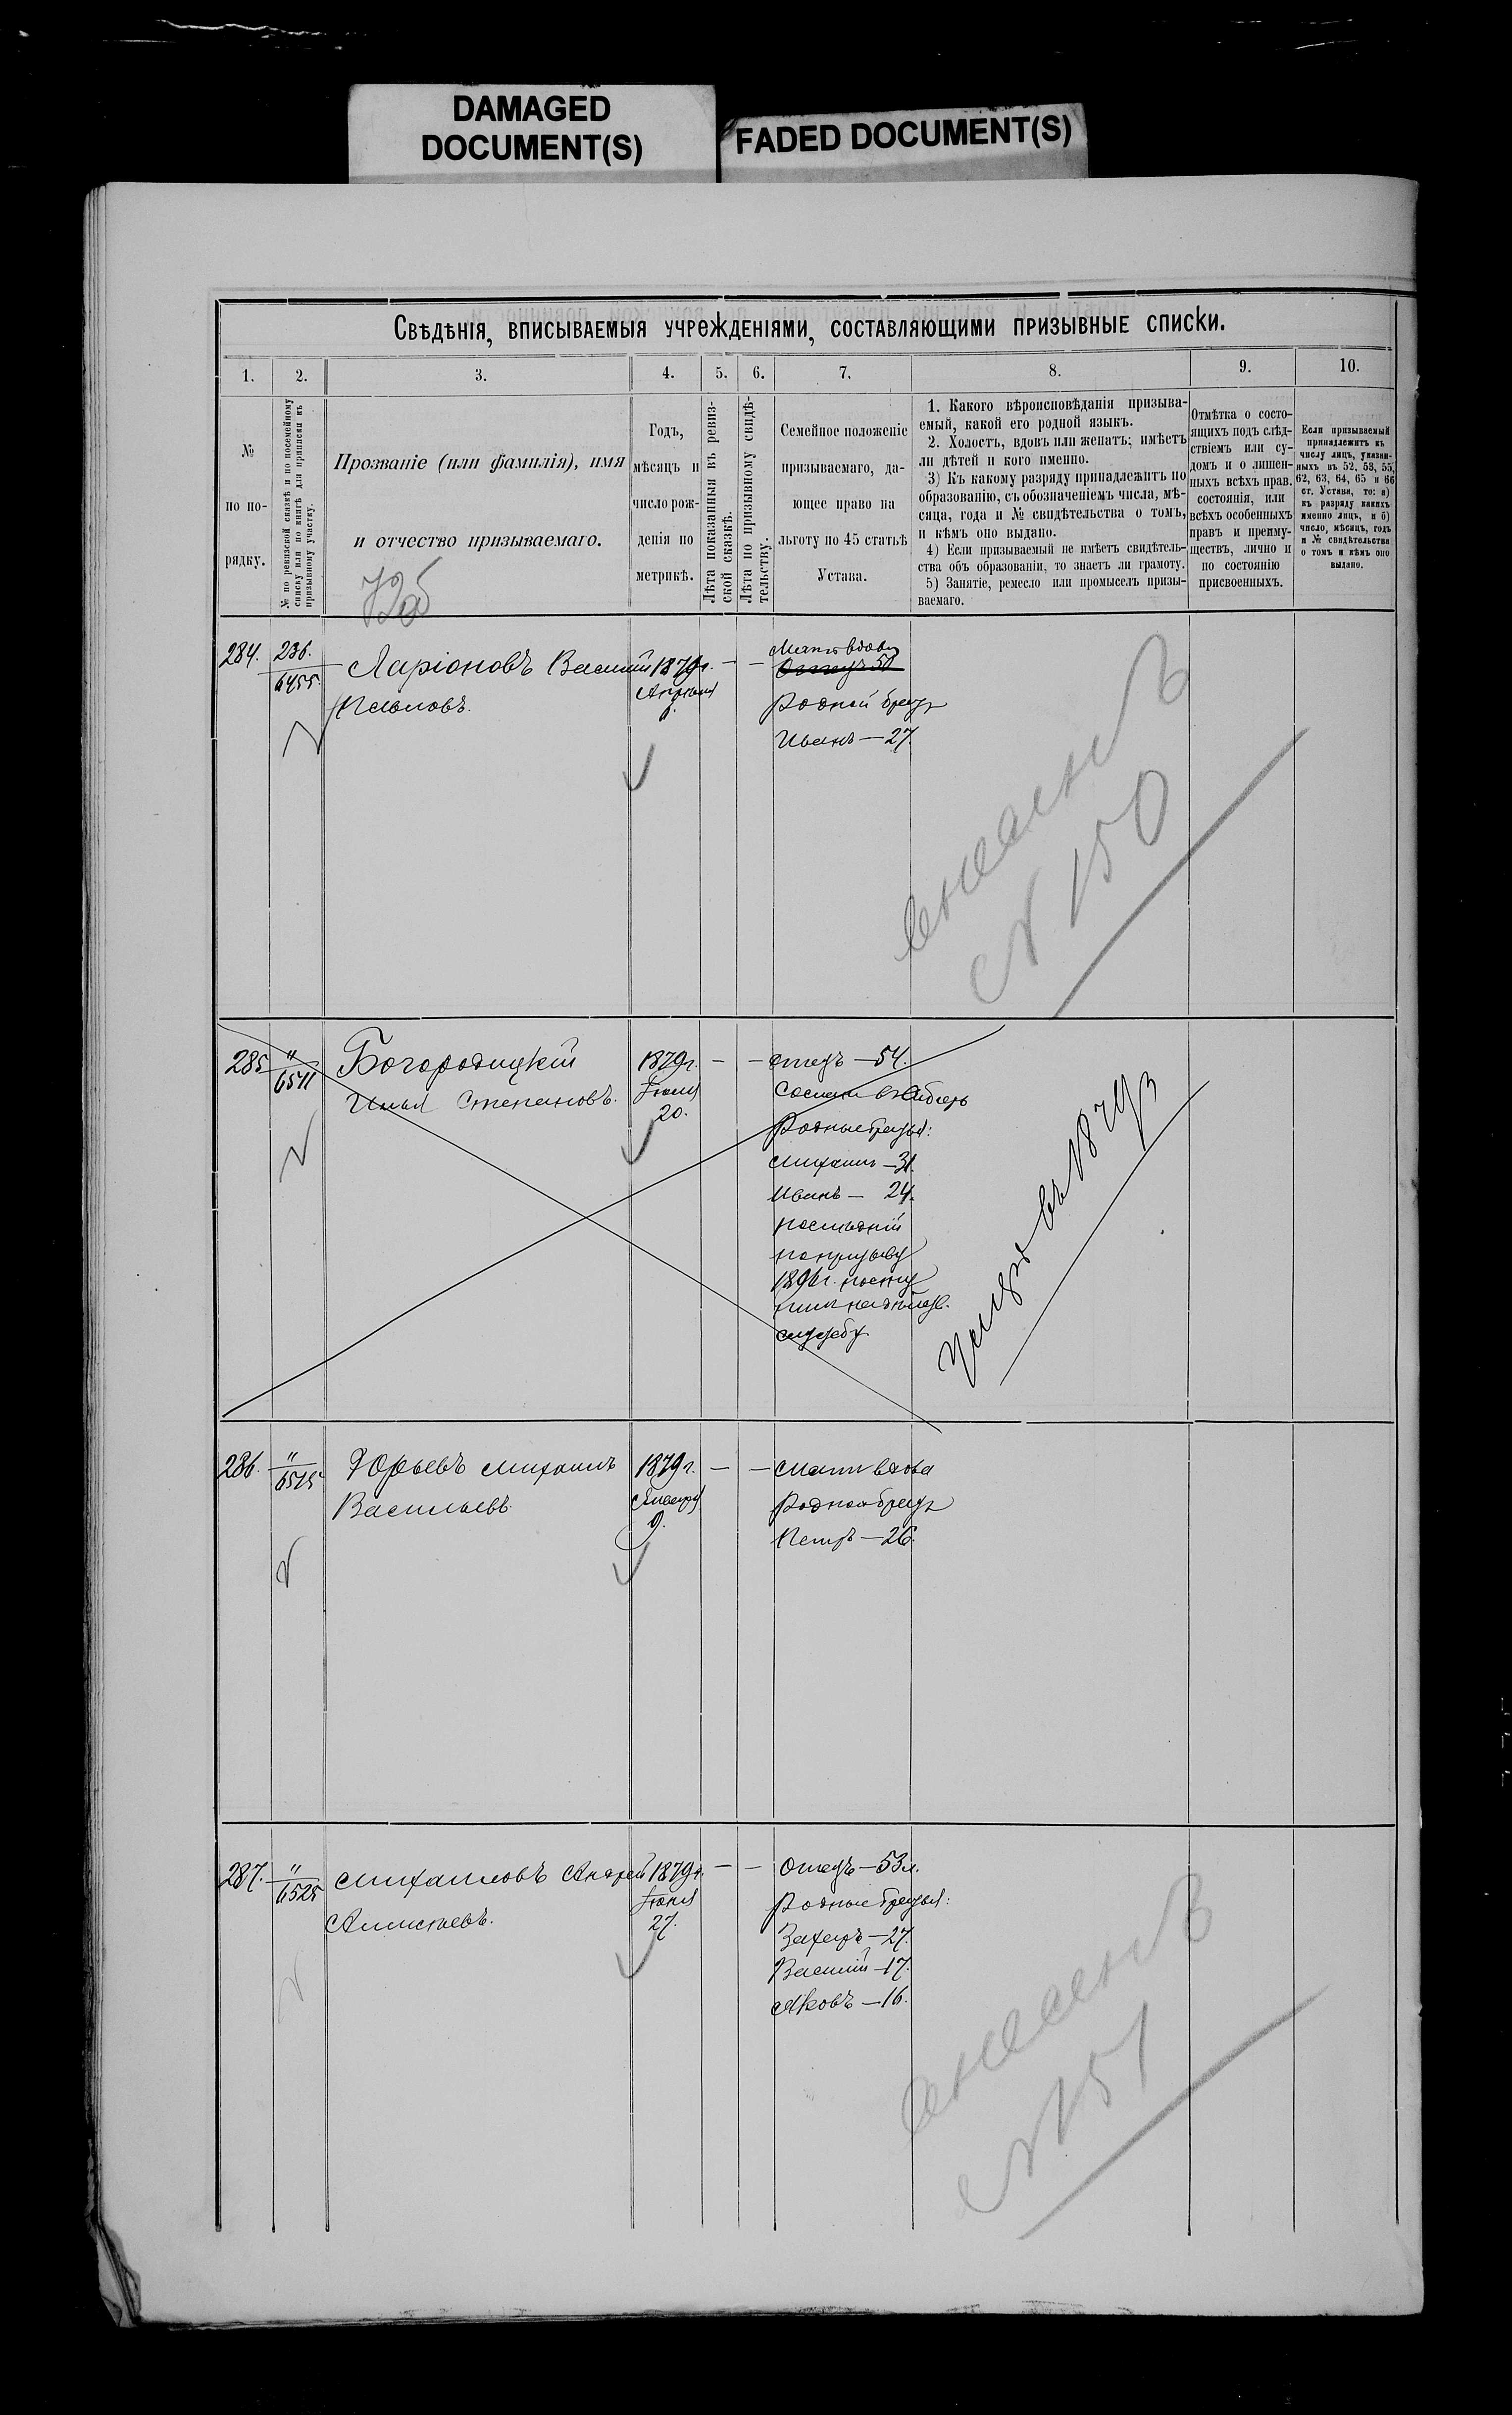 DAMAGED
DOCUMENT(S)
FADED DOCUMENT(S)
Свѣдѣнія, вписываемыя учрежденіями, составляющими призывные списки.
1. 2. 3. 4. 5. 6. 7. 8. 9. 10.
№
по по-
рядку.
№ по ревизской сказкѣ и по посемейному
списку или по книгѣ для приписки къ
призывному участку.
Прозваніе (или фамилія), имя
и отчество призываемаго.
Годъ,
мѣсяцъ и
число рож-
денія по
метрикѣ.
Лѣта показанныя въ ревиз-
ской сказкѣ.
Лѣта по призывному свидѣ-
тельству.
Семейное положеніе
призываемаго, да-
ющее право на
льготу по 45 статьѣ
Устава.
1. Какого вѣроисповѣданія призыва-
емый, какой его родной языкъ.
2. Холостъ, вдовъ или женатъ; имѣетъ
ли дѣтей и кого именно.
3) Къ какому разряду принадлежитъ по
образованію, съ обозначеніемъ числа, мѣ-
сяца, года и № свидѣтельства о томъ,
и кѣмъ оно выдано.
4) Если призываемый не имѣетъ свидѣтель-
ства объ образованіи, то знаетъ ли грамоту.
5) Занятіе, ремесло или промыселъ призы-
ваемаго.
Отмѣтка о состо-
ящихъ подъ слѣд-
ствіемъ или су-
домъ и о лишен-
ныхъ всѣхъ прав.
состоянія, или
всѣхъ особенныхъ
правъ и преиму-
ществъ, лично и
по состоянію
присвоенныхъ.
Если призываемый
принадлежитъ къ
числу лицъ, указан-
ныхъ въ 52, 53, 55,
62, 63, 64, 65 и 66
ст. Устава, то: а)
къ разряду какихъ
именно лицъ, и б)
число, мѣсяцъ, годъ
и № свидѣтельства
о томъ и кѣмъ оно
выдано.
284. 236. Ларіоновъ Василій 1879г. — — Мать вдова
6455 Отецъ 50
Павловъ. Апрѣля Родной братъ
Иванъ — 27.
внесенъ
№ 150
285 " Богородицкій 1879г. — — отецъ — 54.
6511
Илья Степановъ. Іюля сосланъ въ Сибирь
20. Родные братья:
Михаилъ — 31.
Иванъ — 24.
послѣдній
по призыву
службу
286. " Юрьевъ Михаилъ 1879г. — — мать вдова
6515
Васильевъ. Января Родной братъ
9. Петръ — 26.
287. " Михаиловъ Андрей 1879г. — — Отецъ — 53 л.
6525 Іюня Родные братья:
27. Захаръ — 27.
Василій — 17.
Яковъ — 16.
внесенъ
№ 151